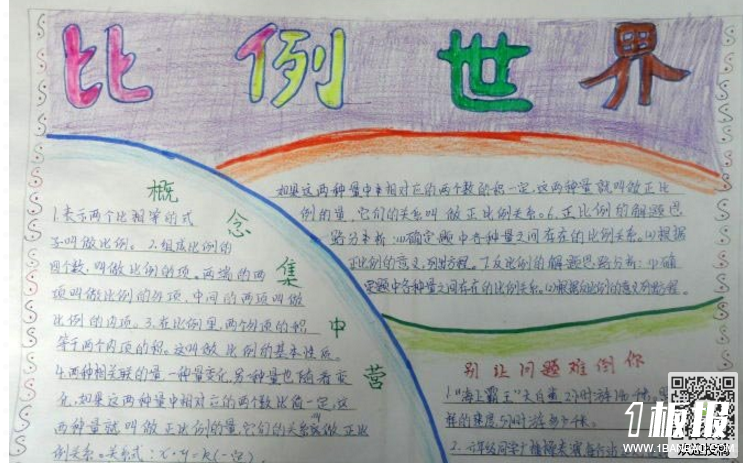 比例世界
概念集中营
1.表示两个比相等的式
子叫做比例。2.组成比例的
四个数,叫做比例的项。两端的两
项叫做比例的外项,中间的两项叫做
比例的内项。3.在比例里,两个外项的积
等于两个内项的积。这叫做比例的基本性质。
4.两种相关联的量一种量变化,另一种量也随着变
化,如果这两种量中相对应的两个数比值一定,这
两种量就叫做正比例的量,它们的关系叫做正比
例关系。关系式:x·y=k(一定)
如果这两种量中相对应的两个数的积一定,这两种量就叫做正比
例的量,它们的关系叫做正比例关系。6.正比例的解题思
路分析:(1)确定题中各种量之间存在的比例关系。(2)根据
正比例的意义,列出方程。7.反比例的解题思路分析:(1)确
定题中各种量之间存在的比例关系。(2)根据反比例的意义列方程。
别让问题难倒你
1."海上霸王"大白鲨2小时游
样的速度,5小时游多少千米。
2.六年级同学
1板报
WWW.1BANBAO.COM